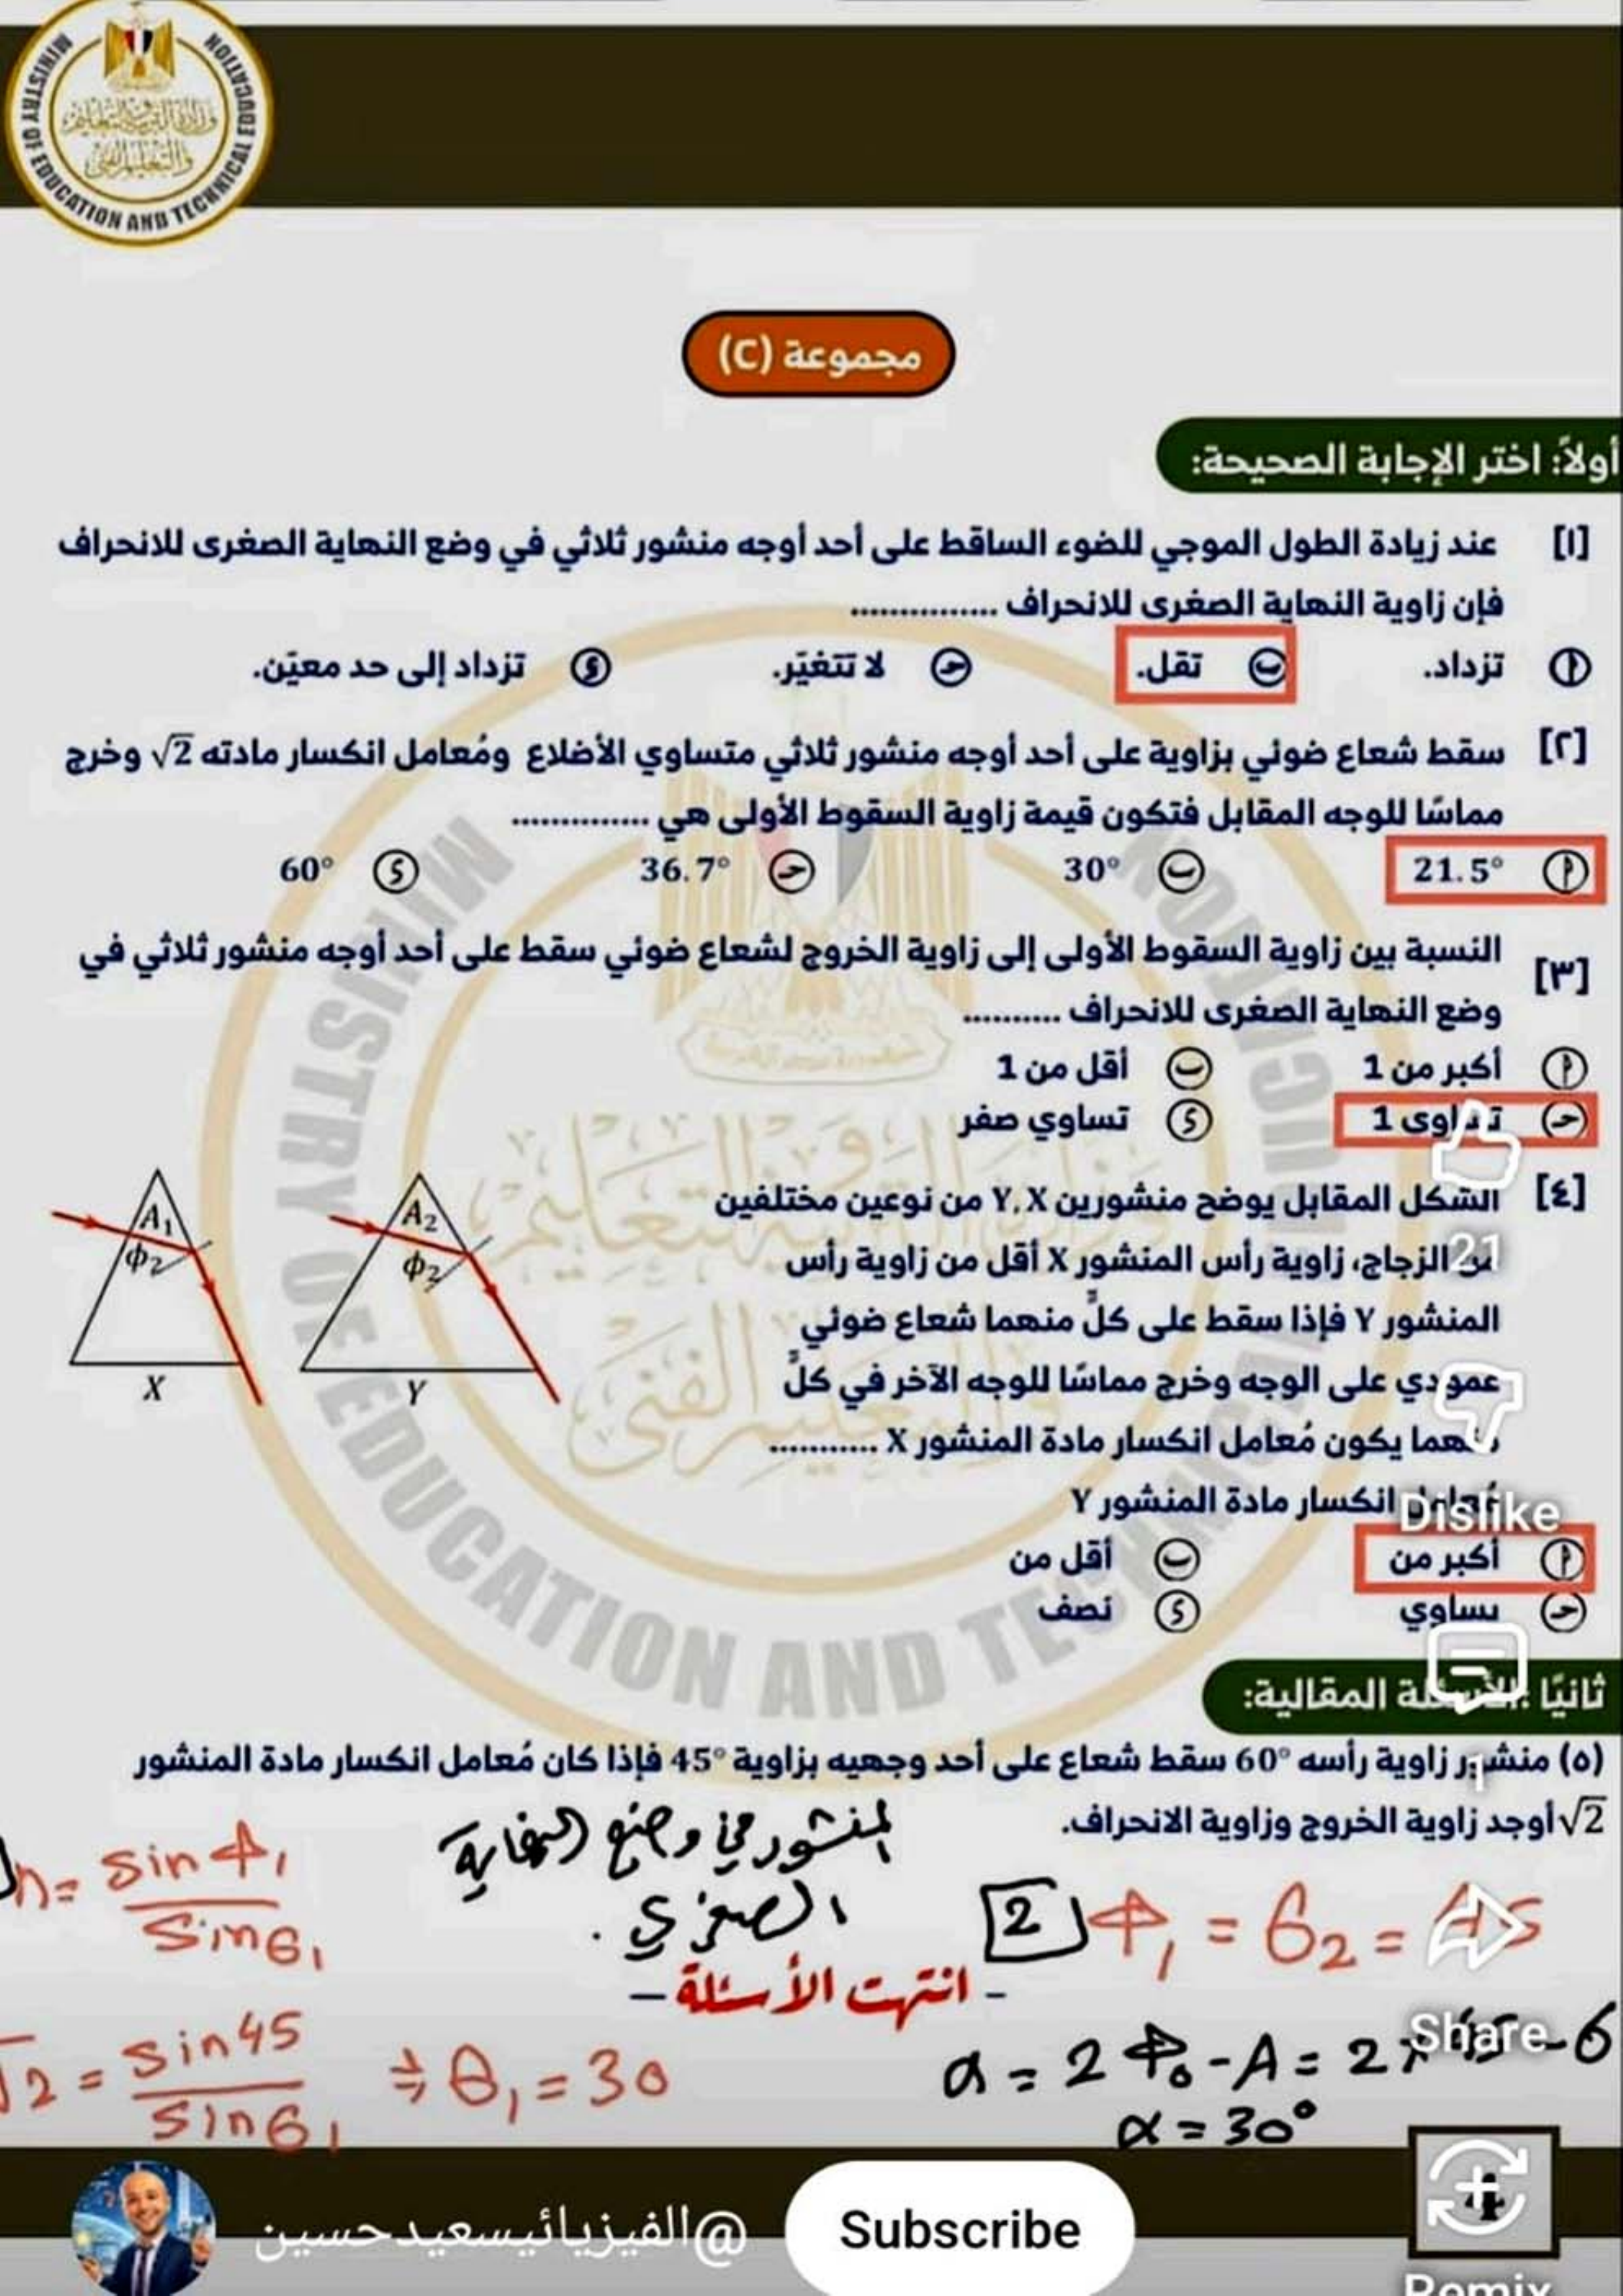 MINISTRY OF EDUCATION AND TECHNICAL EDUCATION
وزارة التربية والتعليم
والتعليم الفني
مجموعة (C)
أولاً: اختر الإجابة الصحيحة:
[١] عند زيادة الطول الموجي للضوء الساقط على أحد أوجه منشور ثلاثي في وضع النهاية الصغرى للانحراف
فإن زاوية النهاية الصغرى للانحراف ...............
أ تزداد. ب تقل. ج لا تتغيّر. د تزداد إلى حد معيّن.
[٢] سقط شعاع ضوئي بزاوية على أحد أوجه منشور ثلاثي متساوي الأضلاع ومُعامل انكسار مادته √2 وخرج
مماسًا للوجه المقابل فتكون قيمة زاوية السقوط الأولى هي ..............
أ 21.5° ب 30° ج 36.7° د 60°
[٣] النسبة بين زاوية السقوط الأولى إلى زاوية الخروج لشعاع ضوئي سقط على أحد أوجه منشور ثلاثي في
وضع النهاية الصغرى للانحراف ..........
أ أكبر من 1 ب أقل من 1
ج تساوى 1 د تساوي صفر
[٤] الشكل المقابل يوضح منشورين Y, X من نوعين مختلفين
من الزجاج، زاوية رأس المنشور X أقل من زاوية رأس
المنشور Y فإذا سقط على كلٍّ منهما شعاع ضوئي
عمودي على الوجه وخرج مماسًا للوجه الآخر في كلٍّ
منهما يكون مُعامل انكسار مادة المنشور X ...........
مُعامل انكسار مادة المنشور Y
A₁
ϕ₂
X
A₂
ϕ₂
Y
أ أكبر من ب أقل من
ج يساوي د نصف
21
Dislike
ثانيًا: الأسئلة المقالية:
(٥) منشور زاوية رأسه 60° سقط شعاع على أحد وجهيه بزاوية 45° فإذا كان مُعامل انكسار مادة المنشور
√2 أوجد زاوية الخروج وزاوية الانحراف.
1
المنشور في وضع النهاية
الصغرى.
n = sin ϕ₁ / sin θ₁
2 ϕ₁ = θ₂ = 45
- انتهت الأسئلة -
√2 = sin 45 / sin θ₁ ⇒ θ₁ = 30
α = 2 ϕ₀ - A = 2 × 45 - 6
α = 30°
Share
@الفيزيائيسعيدحسين
Subscribe
4
Remix